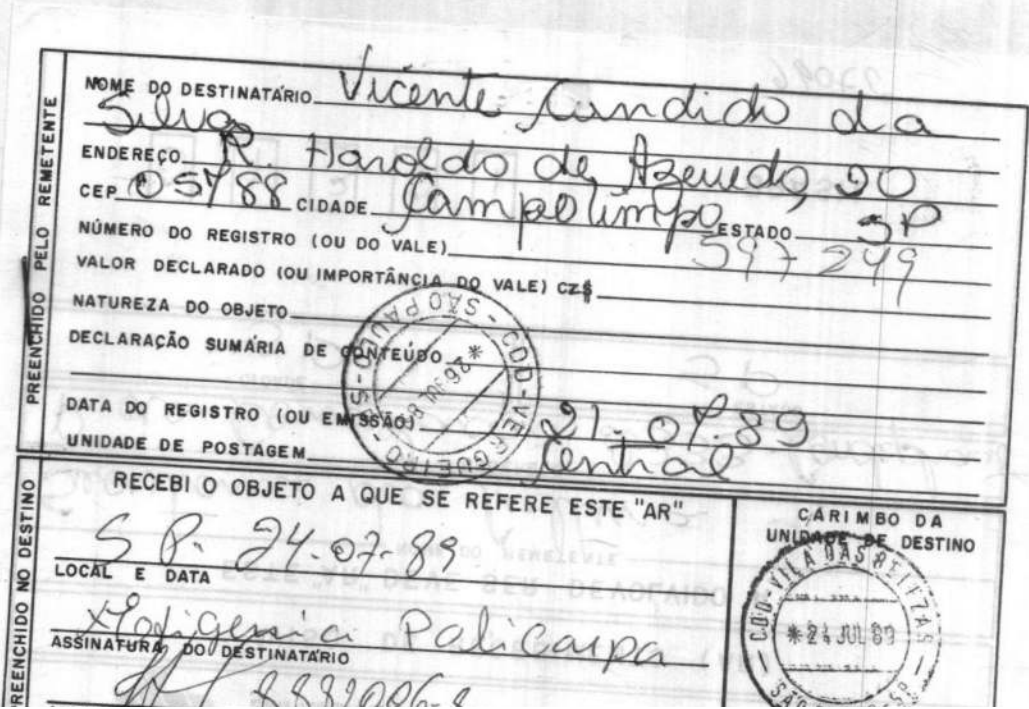 PREENCHIDO PELO REMETENTE
NOME DO DESTINATÁRIO Vicente Candido da
Silva
ENDEREÇO R. Haroldo de Azevedo, 20
CEP 05788 CIDADE Campo limpo ESTADO SP
NÚMERO DO REGISTRO (OU DO VALE) 597249
VALOR DECLARADO (OU IMPORTÂNCIA DO VALE) CZ$
NATUREZA DO OBJETO
DECLARAÇÃO SUMÁRIA DE CONTEÚDO
DATA DO REGISTRO (OU EMISSÃO) 21.07.89
UNIDADE DE POSTAGEM Central
CDD-VERGUEIRO
SÃO PAULO-SP
*26 JUL 89
PREENCHIDO NO DESTINO
RECEBI O OBJETO A QUE SE REFERE ESTE "AR"
S P. 24.07.89
LOCAL E DATA
Palicarpa
ASSINATURA DO DESTINATÁRIO
CARIMBO DA
UNIDADE DE DESTINO
CDD-VILA DAS BELEZAS
*24 JUL 89